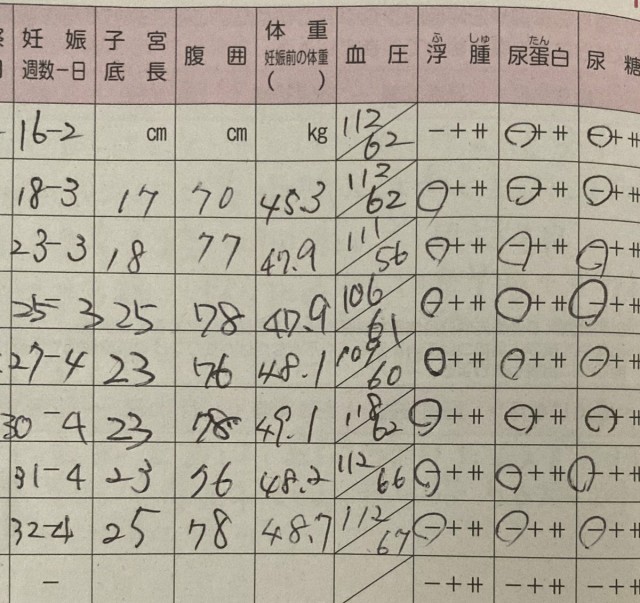 妊娠 子宮 腹囲 体重 血圧 浮腫 尿蛋白 尿糖
週数－日 底長 妊娠前の体重
( )
ふ しゅ たん
16-2 cm cm kg 112/62 － + ⧺ － + ⧺ － + ⧺
18-3 17 70 45.3 112/62 － + ⧺ － + ⧺ － + ⧺
23-3 18 77 47.9 111/56 － + ⧺ － + ⧺ － + ⧺
25-3 25 78 47.9 106/61 － + ⧺ － + ⧺ － + ⧺
27-4 23 76 48.1 109/60 － + ⧺ － + ⧺ － + ⧺
30-4 23 78 49.1 118/62 － + ⧺ － + ⧺ － + ⧺
31-4 23 76 48.2 112/66 － + ⧺ － + ⧺ － + ⧺
32-4 25 78 48.7 112/67 － + ⧺ － + ⧺ － + ⧺
－ － + ⧺ － + ⧺ － + ⧺